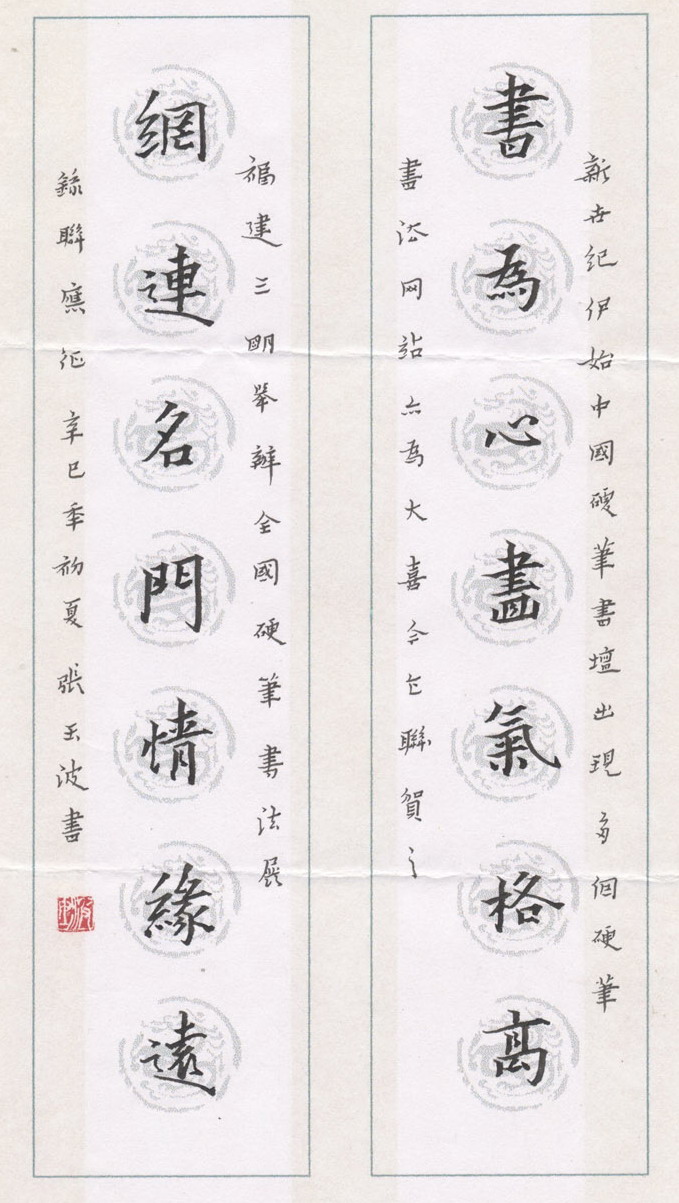 新世纪伊始中國硬筆書壇出現多個硬筆
書為心畫氣格高
書法网站亦為大喜今聯賀之
福建三明舉辦全國硬筆書法展
網連名門情緣遠
錄聯應征辛巳秊初夏張玉波書